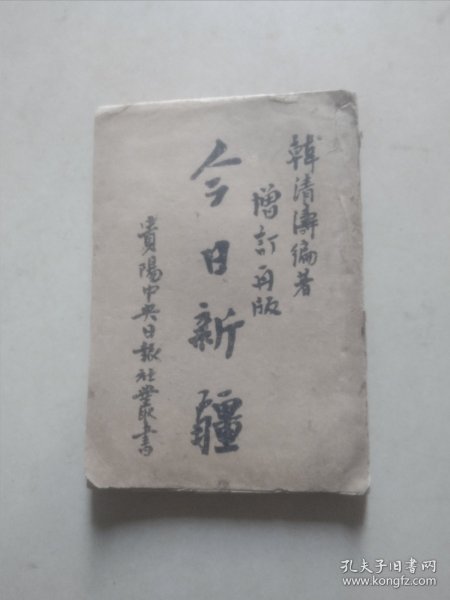 韓清濤編著
增訂再版
今日新疆
貴陽中央日報社叢書
孔夫子旧书网
www.kongfz.com